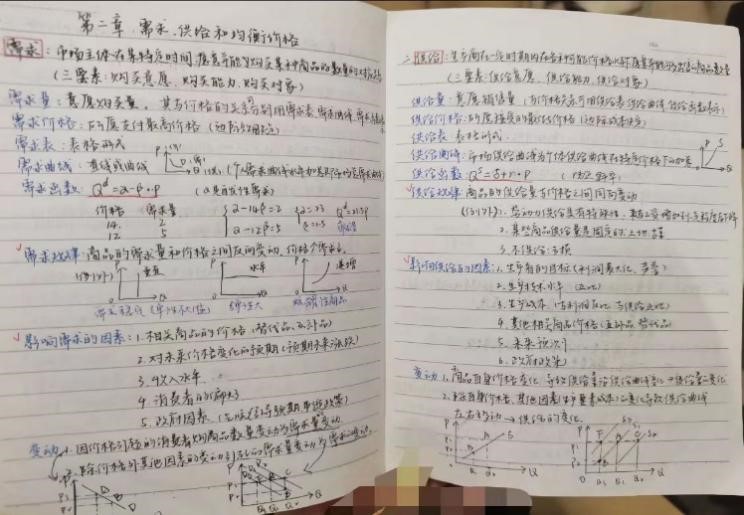 第二章 需求、供给和均衡价格
需求：市场主体在某特定时间，愿意并能够购买某种商品的数量
(三要素：购买意愿，购买能力，购买对象)
需求量：意愿购买量，其与价格的关系可用需求表、需求曲线、需求函数
需求价格：所愿支付最高价格
需求表：表格形式
需求曲线：直线或曲线
需求函数：Q^d=α-β·P (α是自发性需求)
价格 需求量
14 2
12 5
α-14β=2
α-12β=5
α=23
β=1.5
需求规律：商品的需求量和价格之间反向变动
(例外)
垂直
水平
递增
弹性大
炫耀性商品
影响需求的因素：1.相关商品的价格 (替代品、互补品)
2.对未来价格变化的预期
3.收入水平
4.消费者的偏好
5.政府因素
变动 1.因价格引起的消费者购买商品数量变动为需求量变动
2.除价格外其他因素的变动引起的需求量变动为需求的变动
二.供给：生产商在一定时期内在各种可能价格水平下愿意并能够出售的商品数量
(三要素：供给意愿，供给能力，供给对象)
供给量：意愿销售量 (与价格关系可用供给表、供给曲线、供给函数表示)
供给价格：所愿接受的最低价格 (边际成本决定)
供给表：表格形式
供给曲线：市场供给曲线为个体供给曲线在特定价格下的加总
供给函数：Q^s=δ+r·P
供给规律：商品的供给量与价格之间同向变动
(例外) 1.劳动力供给具有特殊性
2.某些商品供给量是固定的：土地、古董
3.
影响供给的因素：1.生产者的目标 (利润最大化、声誉)
2.生产技术水平 (正比)
3.生产成本 (与利润反比 与供给反比)
4.其他相关商品价格 (互补品 替代品)
5.未来预期
6.政府政策
变动 1.商品自身价格变化，导致供给量沿供给曲线变化→供给量变化
2.非自身价格，其他因素 变化导致供给曲线
左右移动→供给的变化